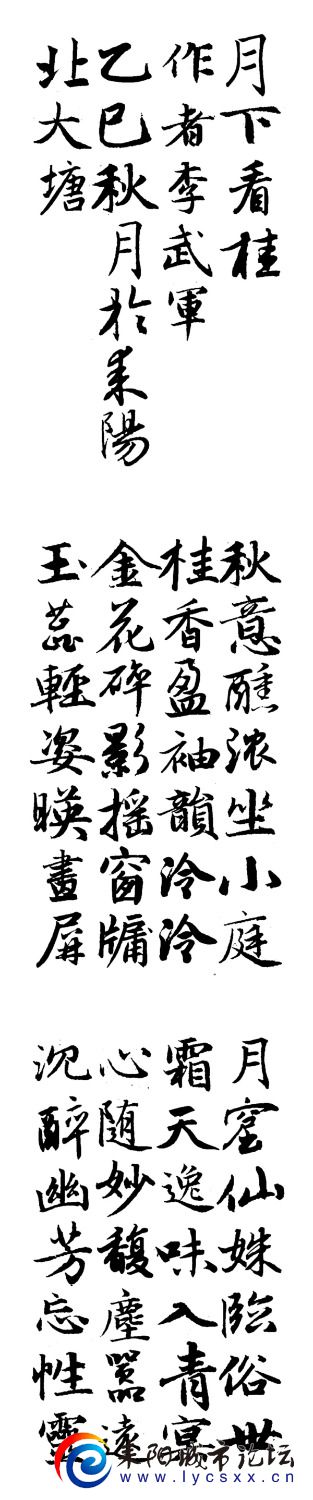 月下看桂
作者李武軍
乙巳秋月於耒陽
北大塘
秋意醺浓坐小庭
桂香盈袖韻泠泠
金花碎影摇窗牖
玉蕊輕姿暎畫屏
月窟仙姝臨俗世
霜天逸味入青冥
心随妙馥塵嚣遠
沉醉幽芳忘性靈
耒阳城市论坛
www.lycsxx.cn